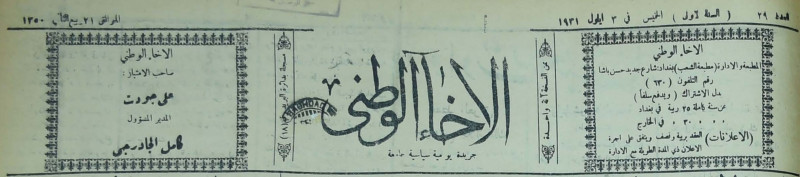 العدد ٢٩ ( السنة الاولى ) الخميس في ٣ ايلول ١٩٣١ الموافق ٢١ ربيع الثاني ١٣٥٠
الاخاء الوطني
المطبعة والادارة (مطبعة الشعب) بغداد شارع جديد حسن باشا
رقم التلفون ( ٦٣٠ )
بدل الاشتراك ( ويدفع سلفاً )
عن سنة كاملة ٢٥ ربية في بغداد
٣٠ في الخارج
(الاعلانات) العقد بربية ونصف ويتفق على اجرة
الاعلان ذي المدة الطويلة مع الادارة
ثمن النسخة آنة واحدة
الاخاء الوطني
جريدة يومية سياسية جامعة
BAGHDAD
الاخاء الوطني
صاحب الامتياز:
علي جودت
المدير المسؤول
كامل الجادرجي